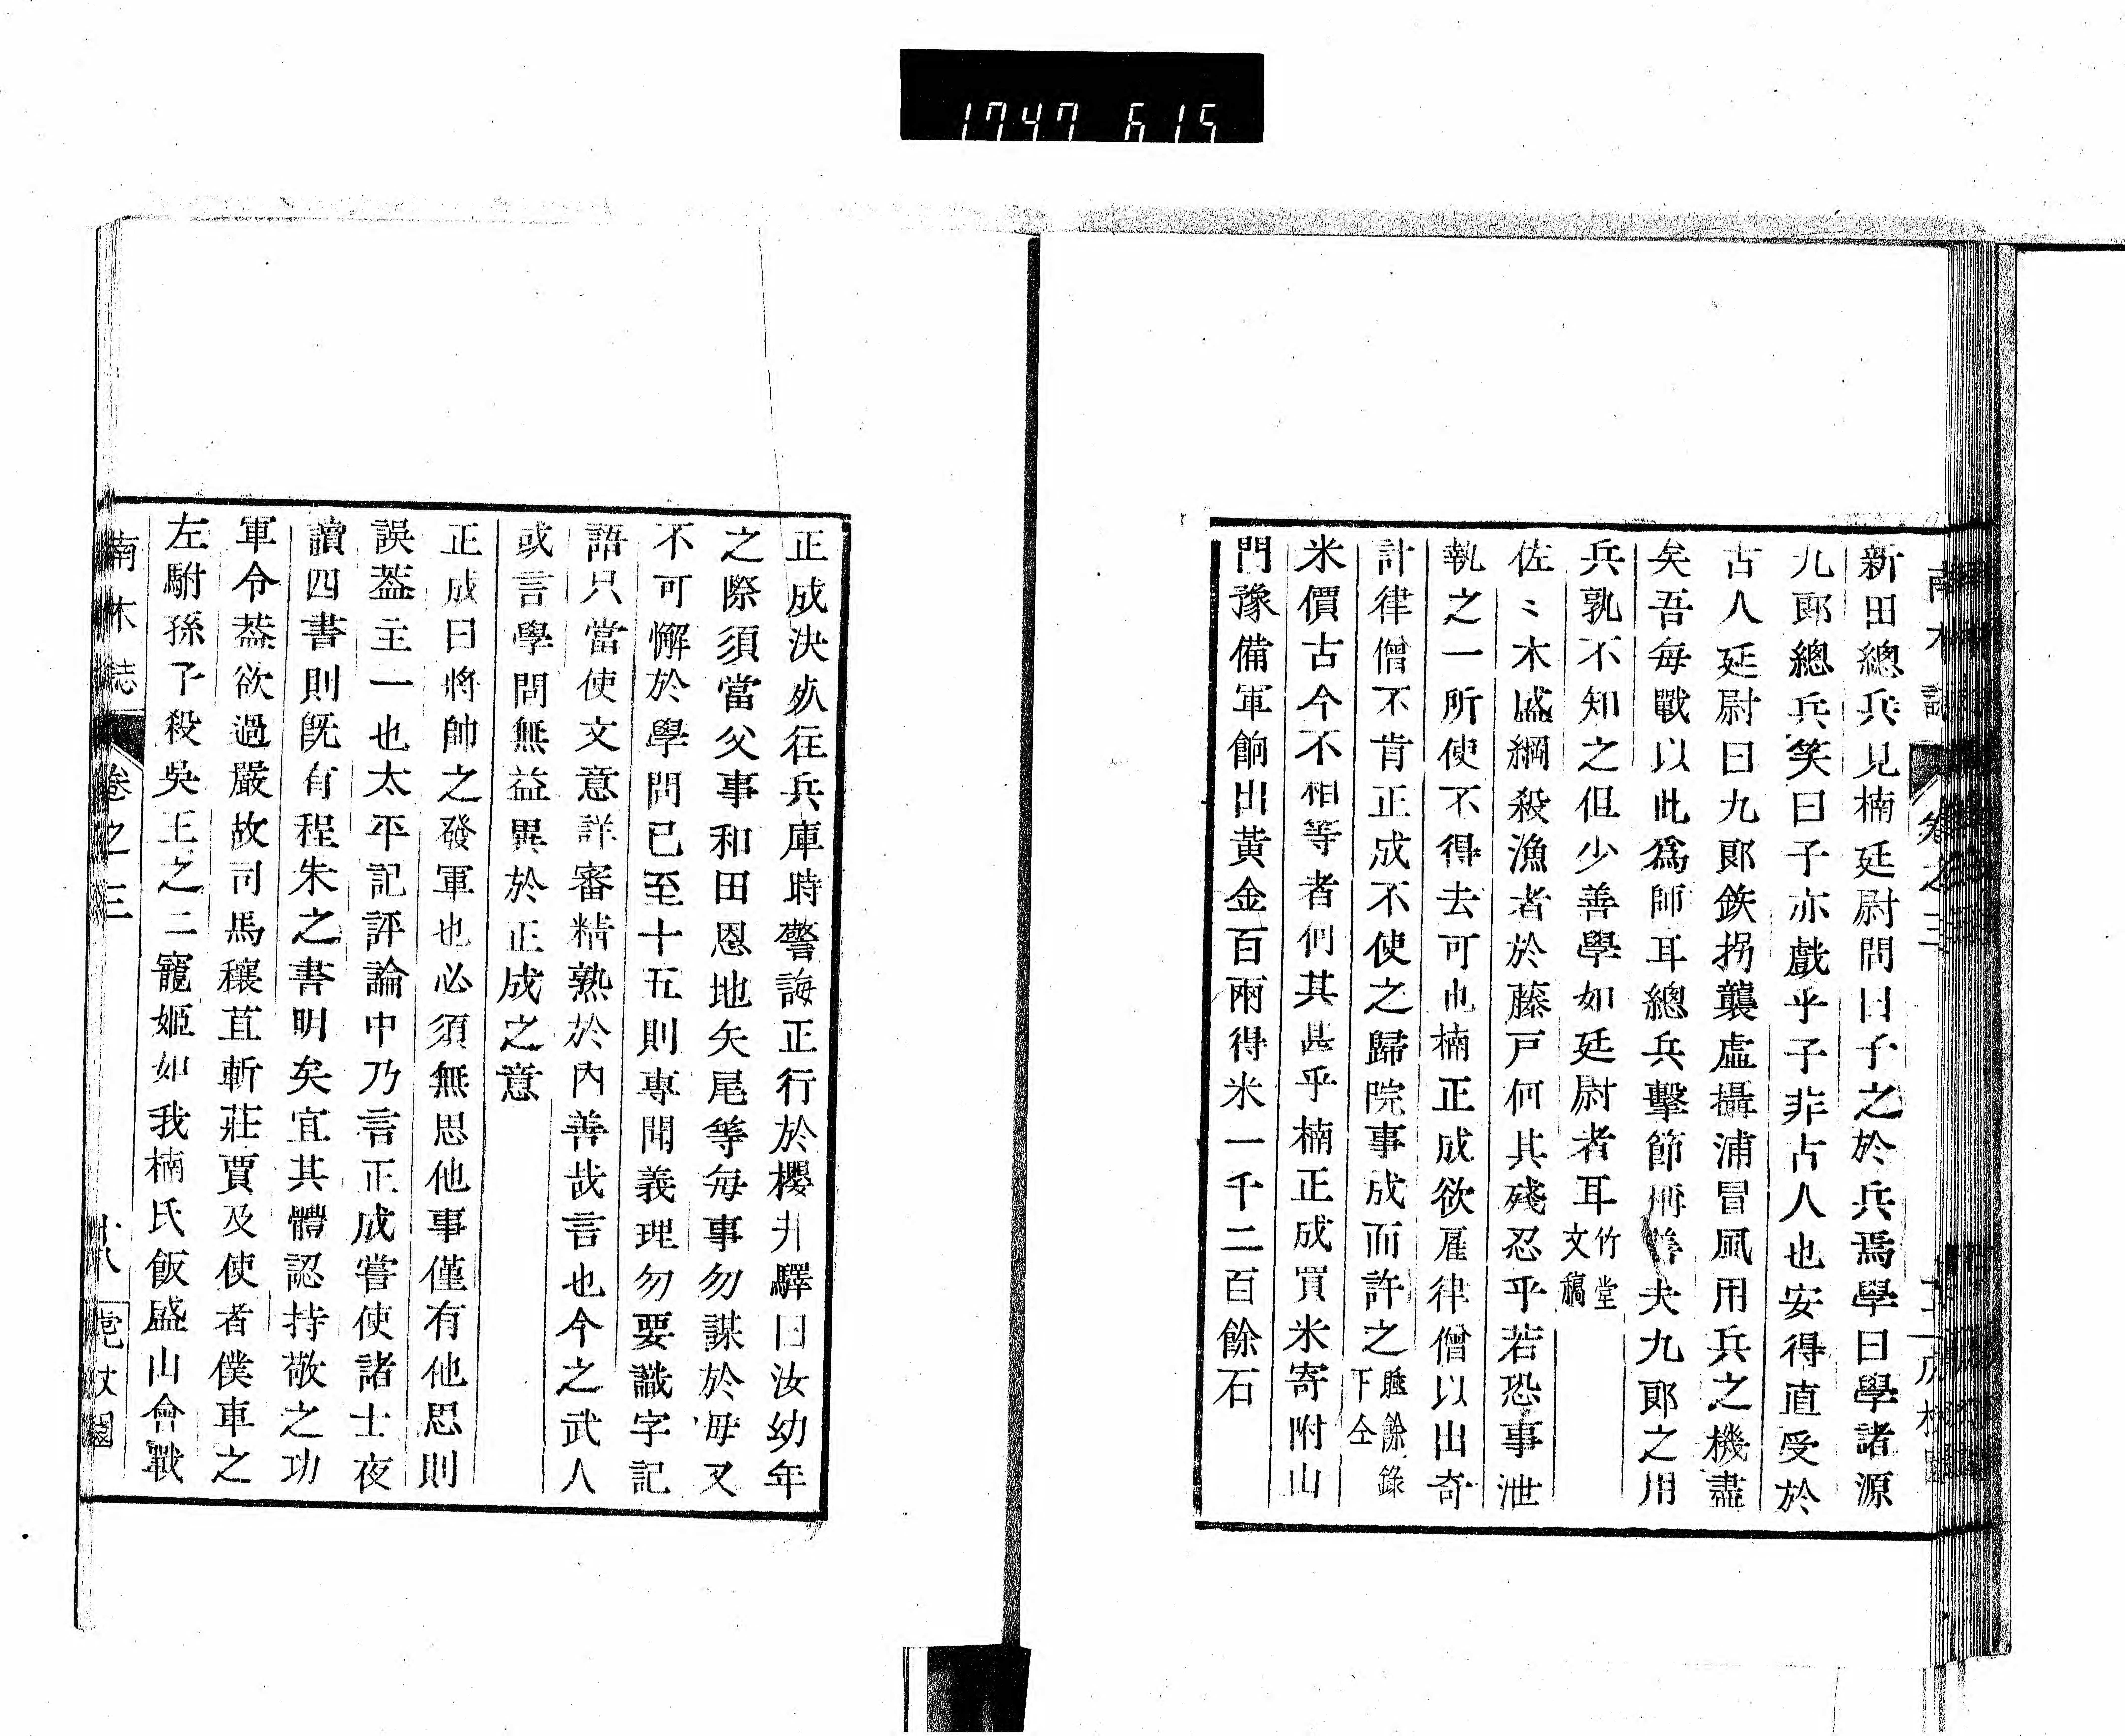 1747 615
新田總兵見楠廷尉問曰子之於兵焉學曰學諸源
九郎總兵笑曰子亦戲乎子非古人也安得直受於
古人廷尉曰九郎鉄拐襲虛攝浦冒風用兵之機盡
矣吾每戰以此爲師耳總兵擊節稱善夫九郎之用
兵孰不知之但少善學如廷尉者耳竹堂文稿
佐〻木盛綱殺漁者於藤戸何其殘忍乎若恐事泄
執之一所使不得去可也楠正成欲雇律僧以出奇
計律僧不肯正成不使之歸院事成而許之睡餘錄下仝
米價古今不相等者何其甚乎楠正成買米寄附山
門豫備軍餉出黃金百兩得米一千二百餘石
正成決死往兵庫時警誨正行於櫻井驛曰汝幼年
之際須當父事和田恩地矢尾等每事勿謀於母又
不可懈於學問已至十五則專聞義理勿要識字記
語只當使文意詳審精熟於内善哉言也今之武人
或言學問無益異於正成之意
正成曰將帥之發軍也必須無思他事僅有他思則
誤葢主一也太平記評論中乃言正成嘗使諸士夜
讀四書則既有程朱之書明矣宜其體認持敬之功
軍令葢欲過嚴故司馬穰苴斬莊賈及使者僕車之
左駙孫子殺吳王之二寵姬如我楠氏飯盛山會戰
南木誌 卷之三 十八